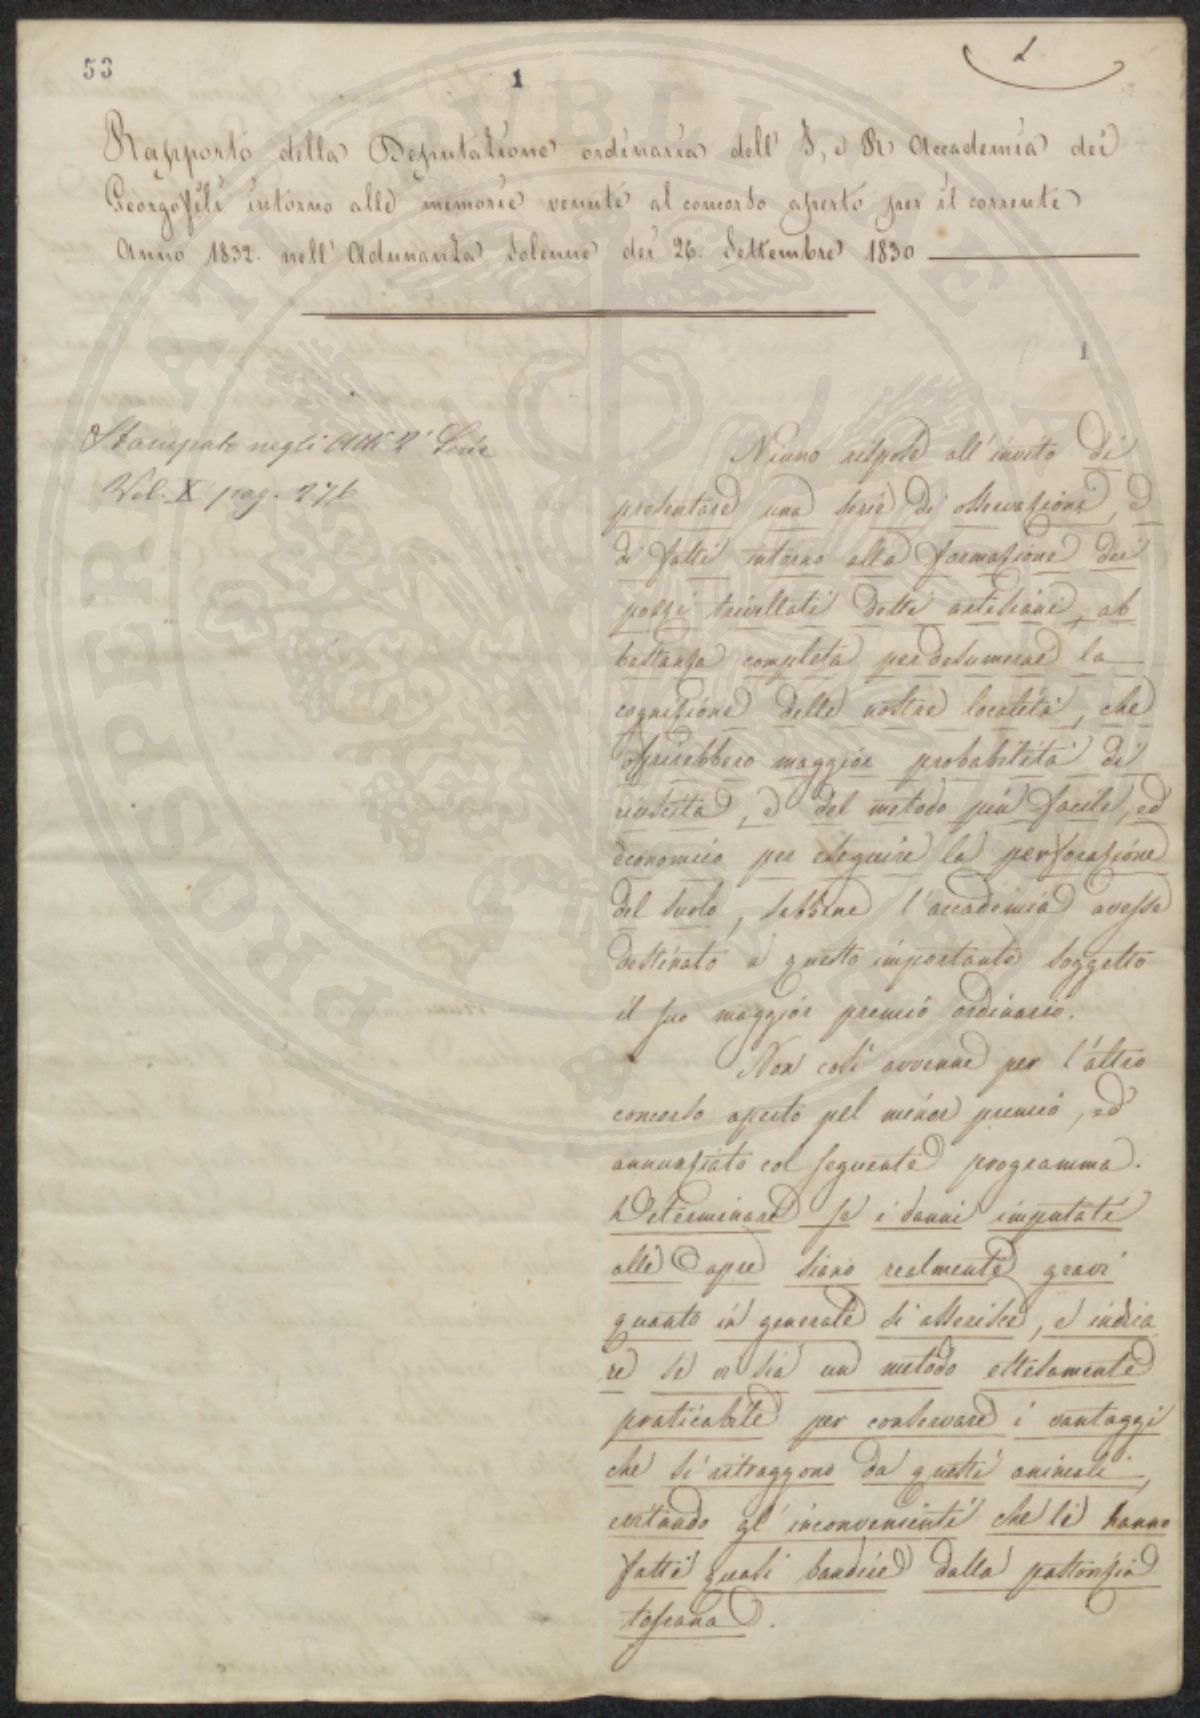 53
1
Rapporto della Deputazione ordinaria dell' I, e R Accademia dei
Georgofili intorno alle memorie venute al concorso aperto per il corrente
Anno 1832. nell' Adunanza solenne dei 26. Settembre 1830
1
Stampato negli Atti
Vol. X pag. 276
Niuno rispose all' invito di
presentare una serie di osservazioni, e
di fatti intorno alla formazione dei
pozzi trivellati detti artesiani, ab
bastanza completa per desumerne la
cognizione delle nostre località, che
offrirebbero maggior probabilità di
riuscita, e del metodo più facile, ed
economico per eseguire la perforazione
del suolo, sebbene l'accademia avesse
destinato a questo importante soggetto
il suo maggior premio ordinario.
Non così avvenne per l'altro
concorso aperto pel minor premio, ed
annunziato col seguente programma.
Determinare se i danni imputati
alle Capre siano realmente gravi
quanto in generale si asserisce, e indica
re se vi sia un metodo estesamente
praticabile per conservare i vantaggi
che si ritraggono da questi animali,
evitando gl' inconvenienti che li hanno
fatti quasi bandire dalla pastorizia
toscana.
PROSPERITATI PUBLICAE